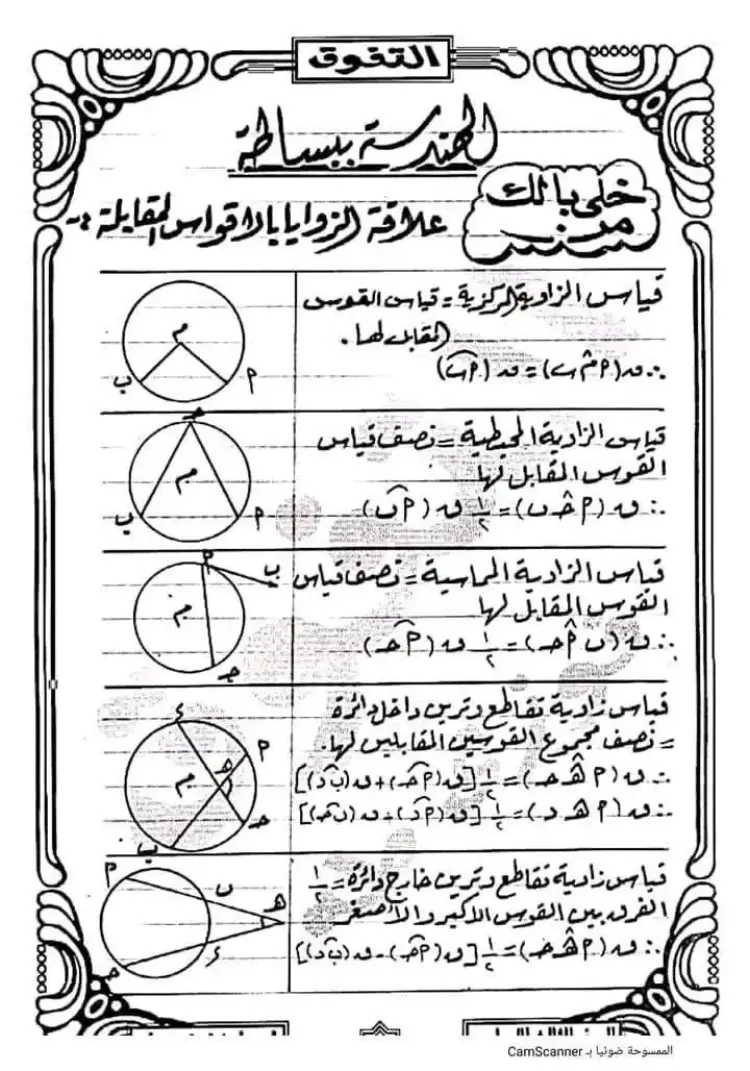 التفوق
الهندسة ببساطة
خلي بالك
من
علاقة الزوايا بالأقواس المقابلة :-
قياس الزاوية المركزية = قياس القوس
المقابل لها .
∴ ق (م م̂ ب) = ق (م ب)
م
ب
م
قياس الزاوية المحيطية = نصف قياس
القوس المقابل لها
∴ ق (م ح̂ ب) = ١/٢ ق (م ب)
ح
م
ب
م
قياس الزاوية المماسية = نصف قياس
القوس المقابل لها
∴ ق (ب م̂ ح) = ١/٢ ق (م ح)
م
ب
م
ح
قياس زاوية تقاطع وترين داخل دائرة
= نصف مجموع القوسين المقابلين لها.
∴ ق (م ه̂ ح) = ١/٢ [ق (م ح) + ق (ب د)]
∴ ق (م ه د) = ١/٢ [ق (م د) + ق (ب ح)]
ء
م
ه
م
ح
ب
قياس زاوية تقاطع وترين خارج دائرة = ١/٢
الفرق بين القوس الأكبر والأصغر
∴ ق (م ه̂ ح) = ١/٢ [ق (م ح) - ق (ب د)]
م
ب
ه
ء
ح
الممسوحة ضوئيا بـ CamScanner